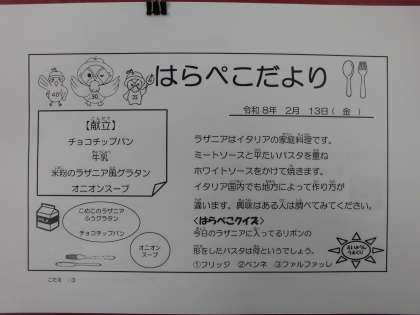 はらぺこだより
令和8年 2月 13日(金)
【献立】
チョコチップパン
牛乳
米粉のラザニア風グラタン
オニオンスープ
ラザニアはイタリアの家庭料理です。
ミートソースと平たいパスタを重ね
ホワイトソースをかけて焼きます。
イタリア国内でも地方によって作り方が
違います。興味はある人は調べてみてください。
<はらぺこクイズ>
今日のラザニアに入ってるリボンの
形をしたパスタは何というでしょう。
①フリッジ ②ペンネ ③ファルファッレ
こめこのラザニア
ふうグラタン
チョコチップパン
オニオン
スープ
こたえ:③